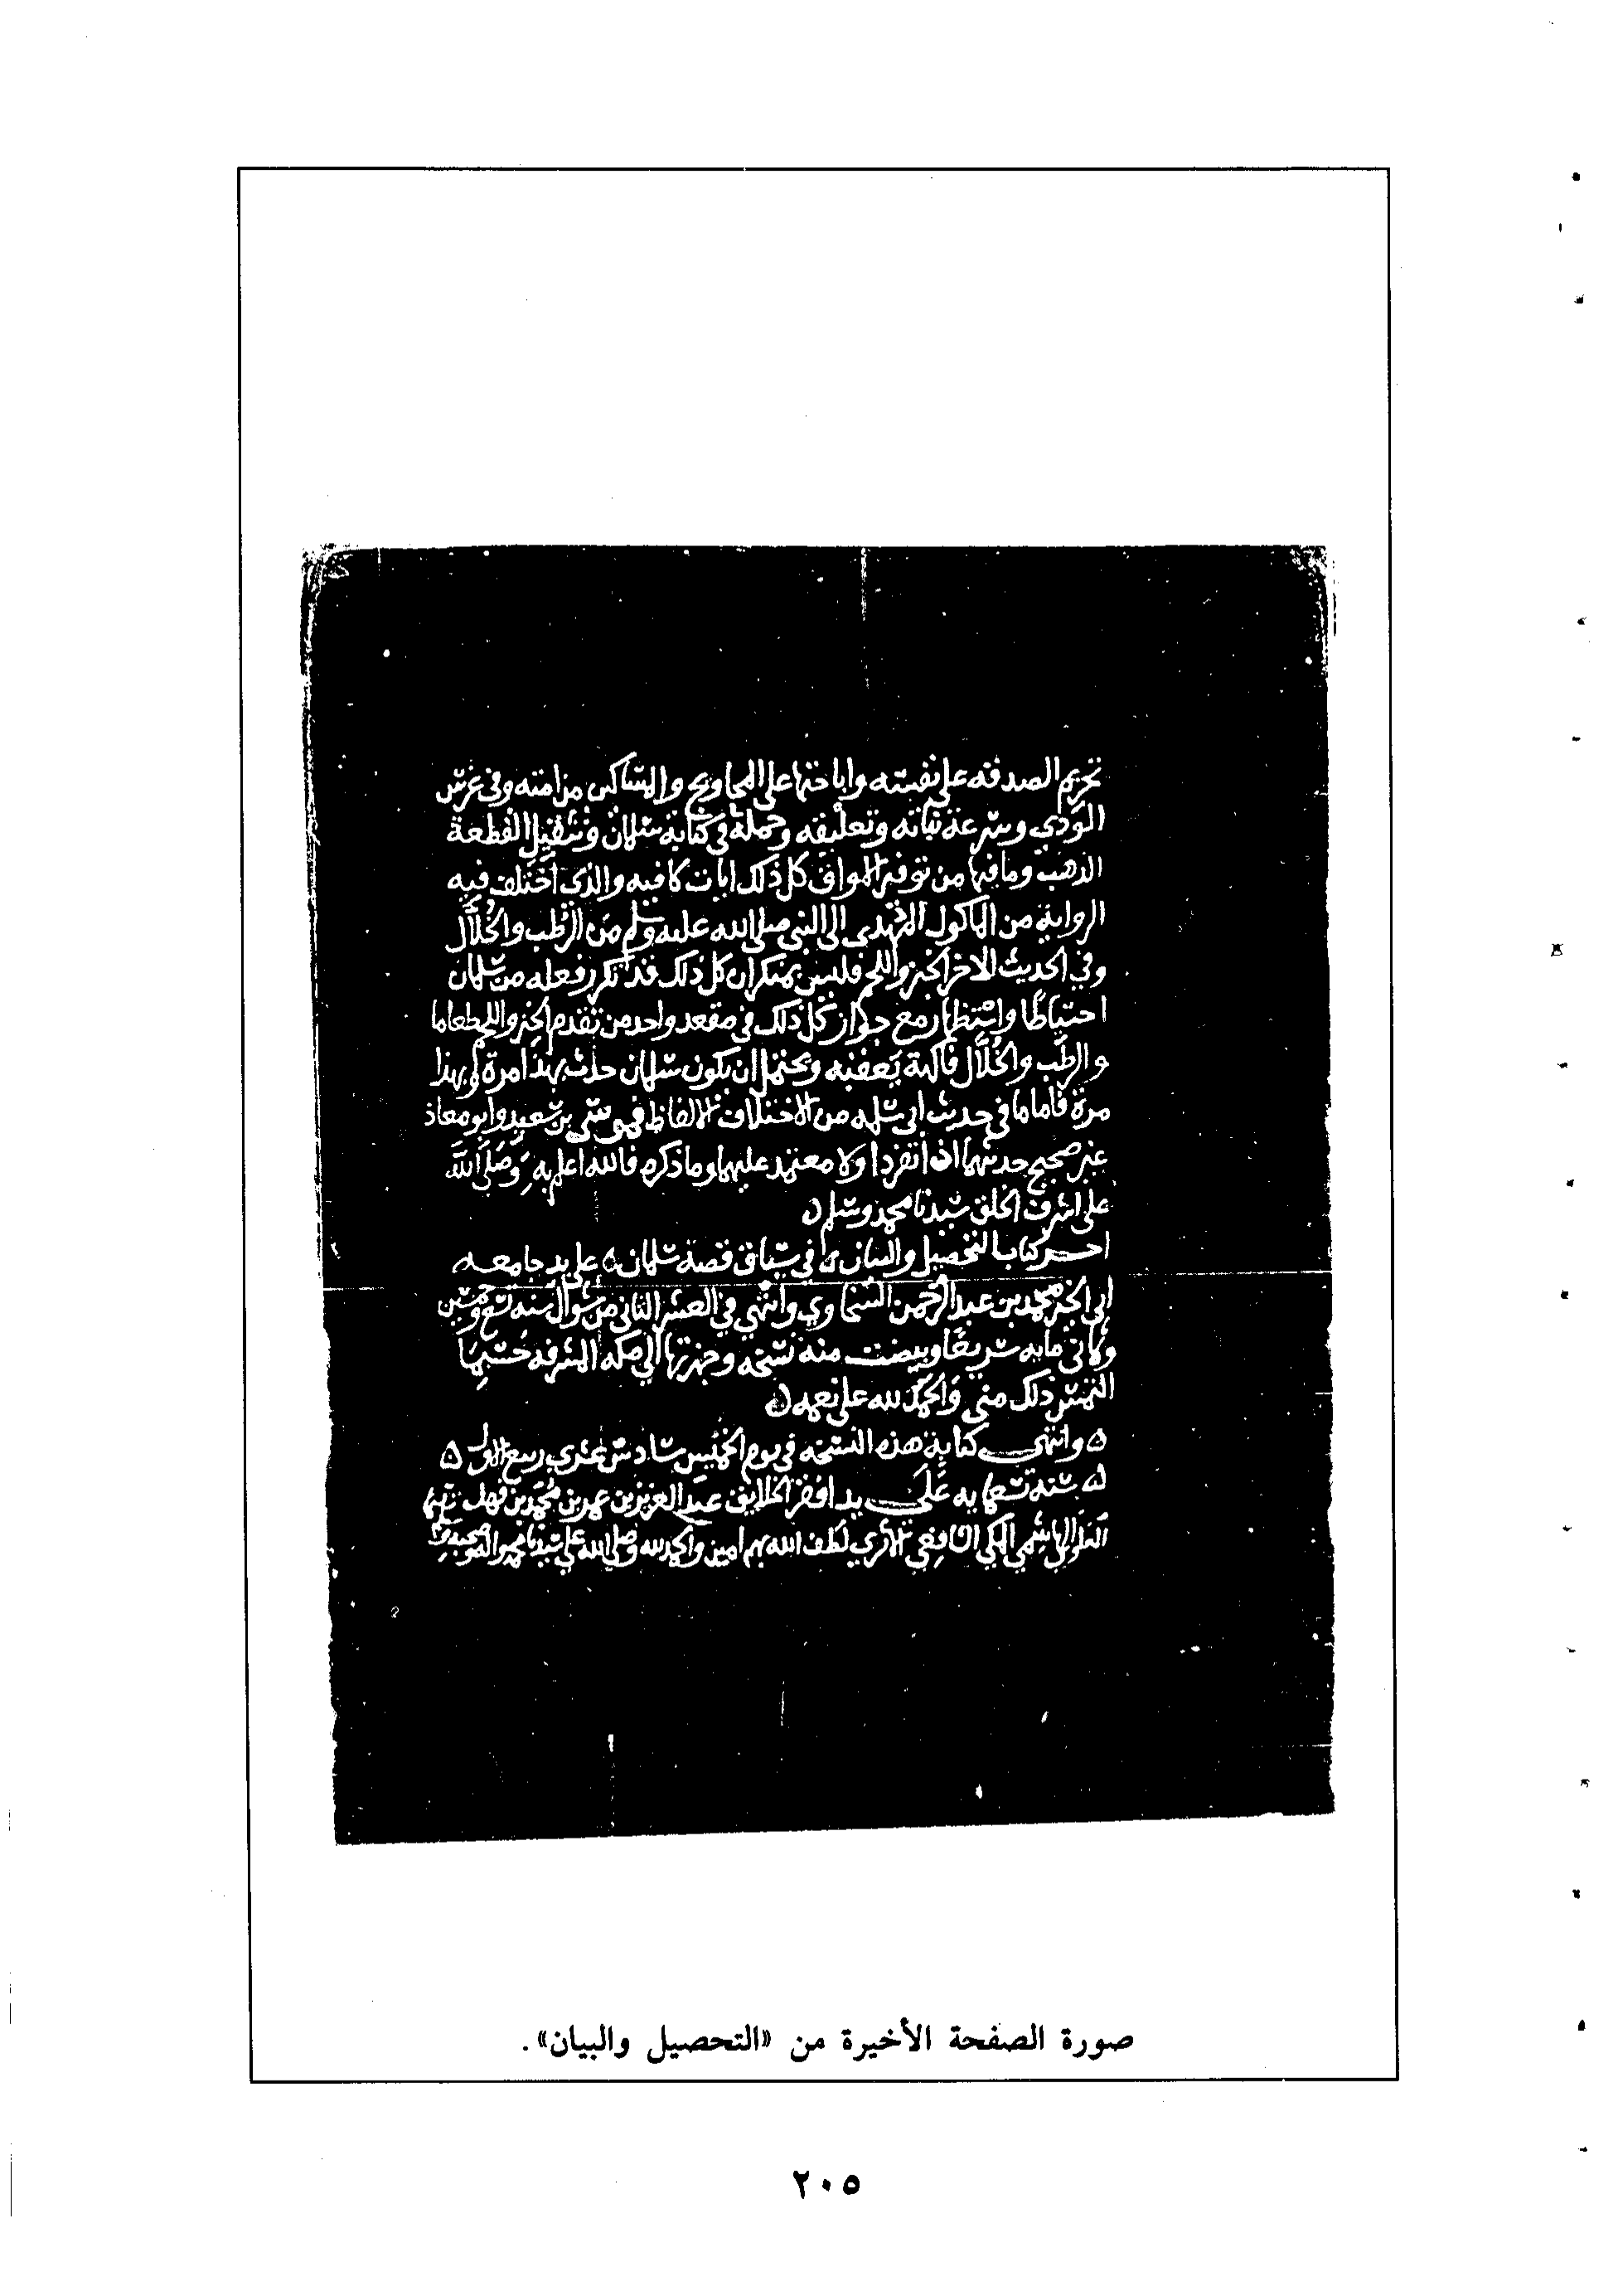 تحريم الصدقة على نفسه واباحتها على المحاويج والمساكين من امته وفي غرس
الودي وسرعة نباته وتعليقه وحمله في كتابة سلمان وتثقيل القطعة
الذهب وما فيها من توفير الاواق كل ذلك ايات كافيه والذي اختلف فيه
الرواية من الماكول المهدى الى النبي صلى الله عليه وسلم من الرطب والخلال
وفي الحديث الاخر الخبز واللحم فليس بمنكر ان كل ذلك قد تكرر فعله من سلمان
احتياطا واستظهار مع جواز كل ذلك في مقعد واحد من تقدم الخبز واللحم طعاما
والرطب والخلال فاكهة يعقبه ويحتمل ان يكون سلمان حدث بهذا مرة وبهذا
مرة فاما ما في حديث ابي سلمه من الاختلاف الالفاظ بن سعيد وابو معاذ
غير صحيح حديثهما اذا انفردا ولا معتمد عليهما وما ذكره فالله اعلم به وصلى الله
على اشرف الخلق سيدنا محمد وسلم
اخر كتاب التحصيل والبيان في سياق قصة سلمان على يد جامعه
ابي الخير محمد بن عبد الرحمن السخاوي وانتهى في العشر الثاني من شوال سنه تسع وخمسين
وثماني مايه سريعا وبيضت منه نسخه وجهزتها الى مكه المشرفه حسبما
التمس ذلك مني والحمد لله على نعمه
وانتهى كتابة هذه النسخه في يوم الخميس سادس عشري ربيع الاول
سنة تسعمايه على يد افقر الخلايق عبد العزيز بن عمر بن محمد بن فهد
العلوي الهاشمي المكي الشافعي الاثري لطف الله بهم امين والحمد لله وصلى الله على سيدنا محمد واله وصحبه وسلم
صورة الصفحة الأخيرة من «التحصيل والبيان».
٢٠٥